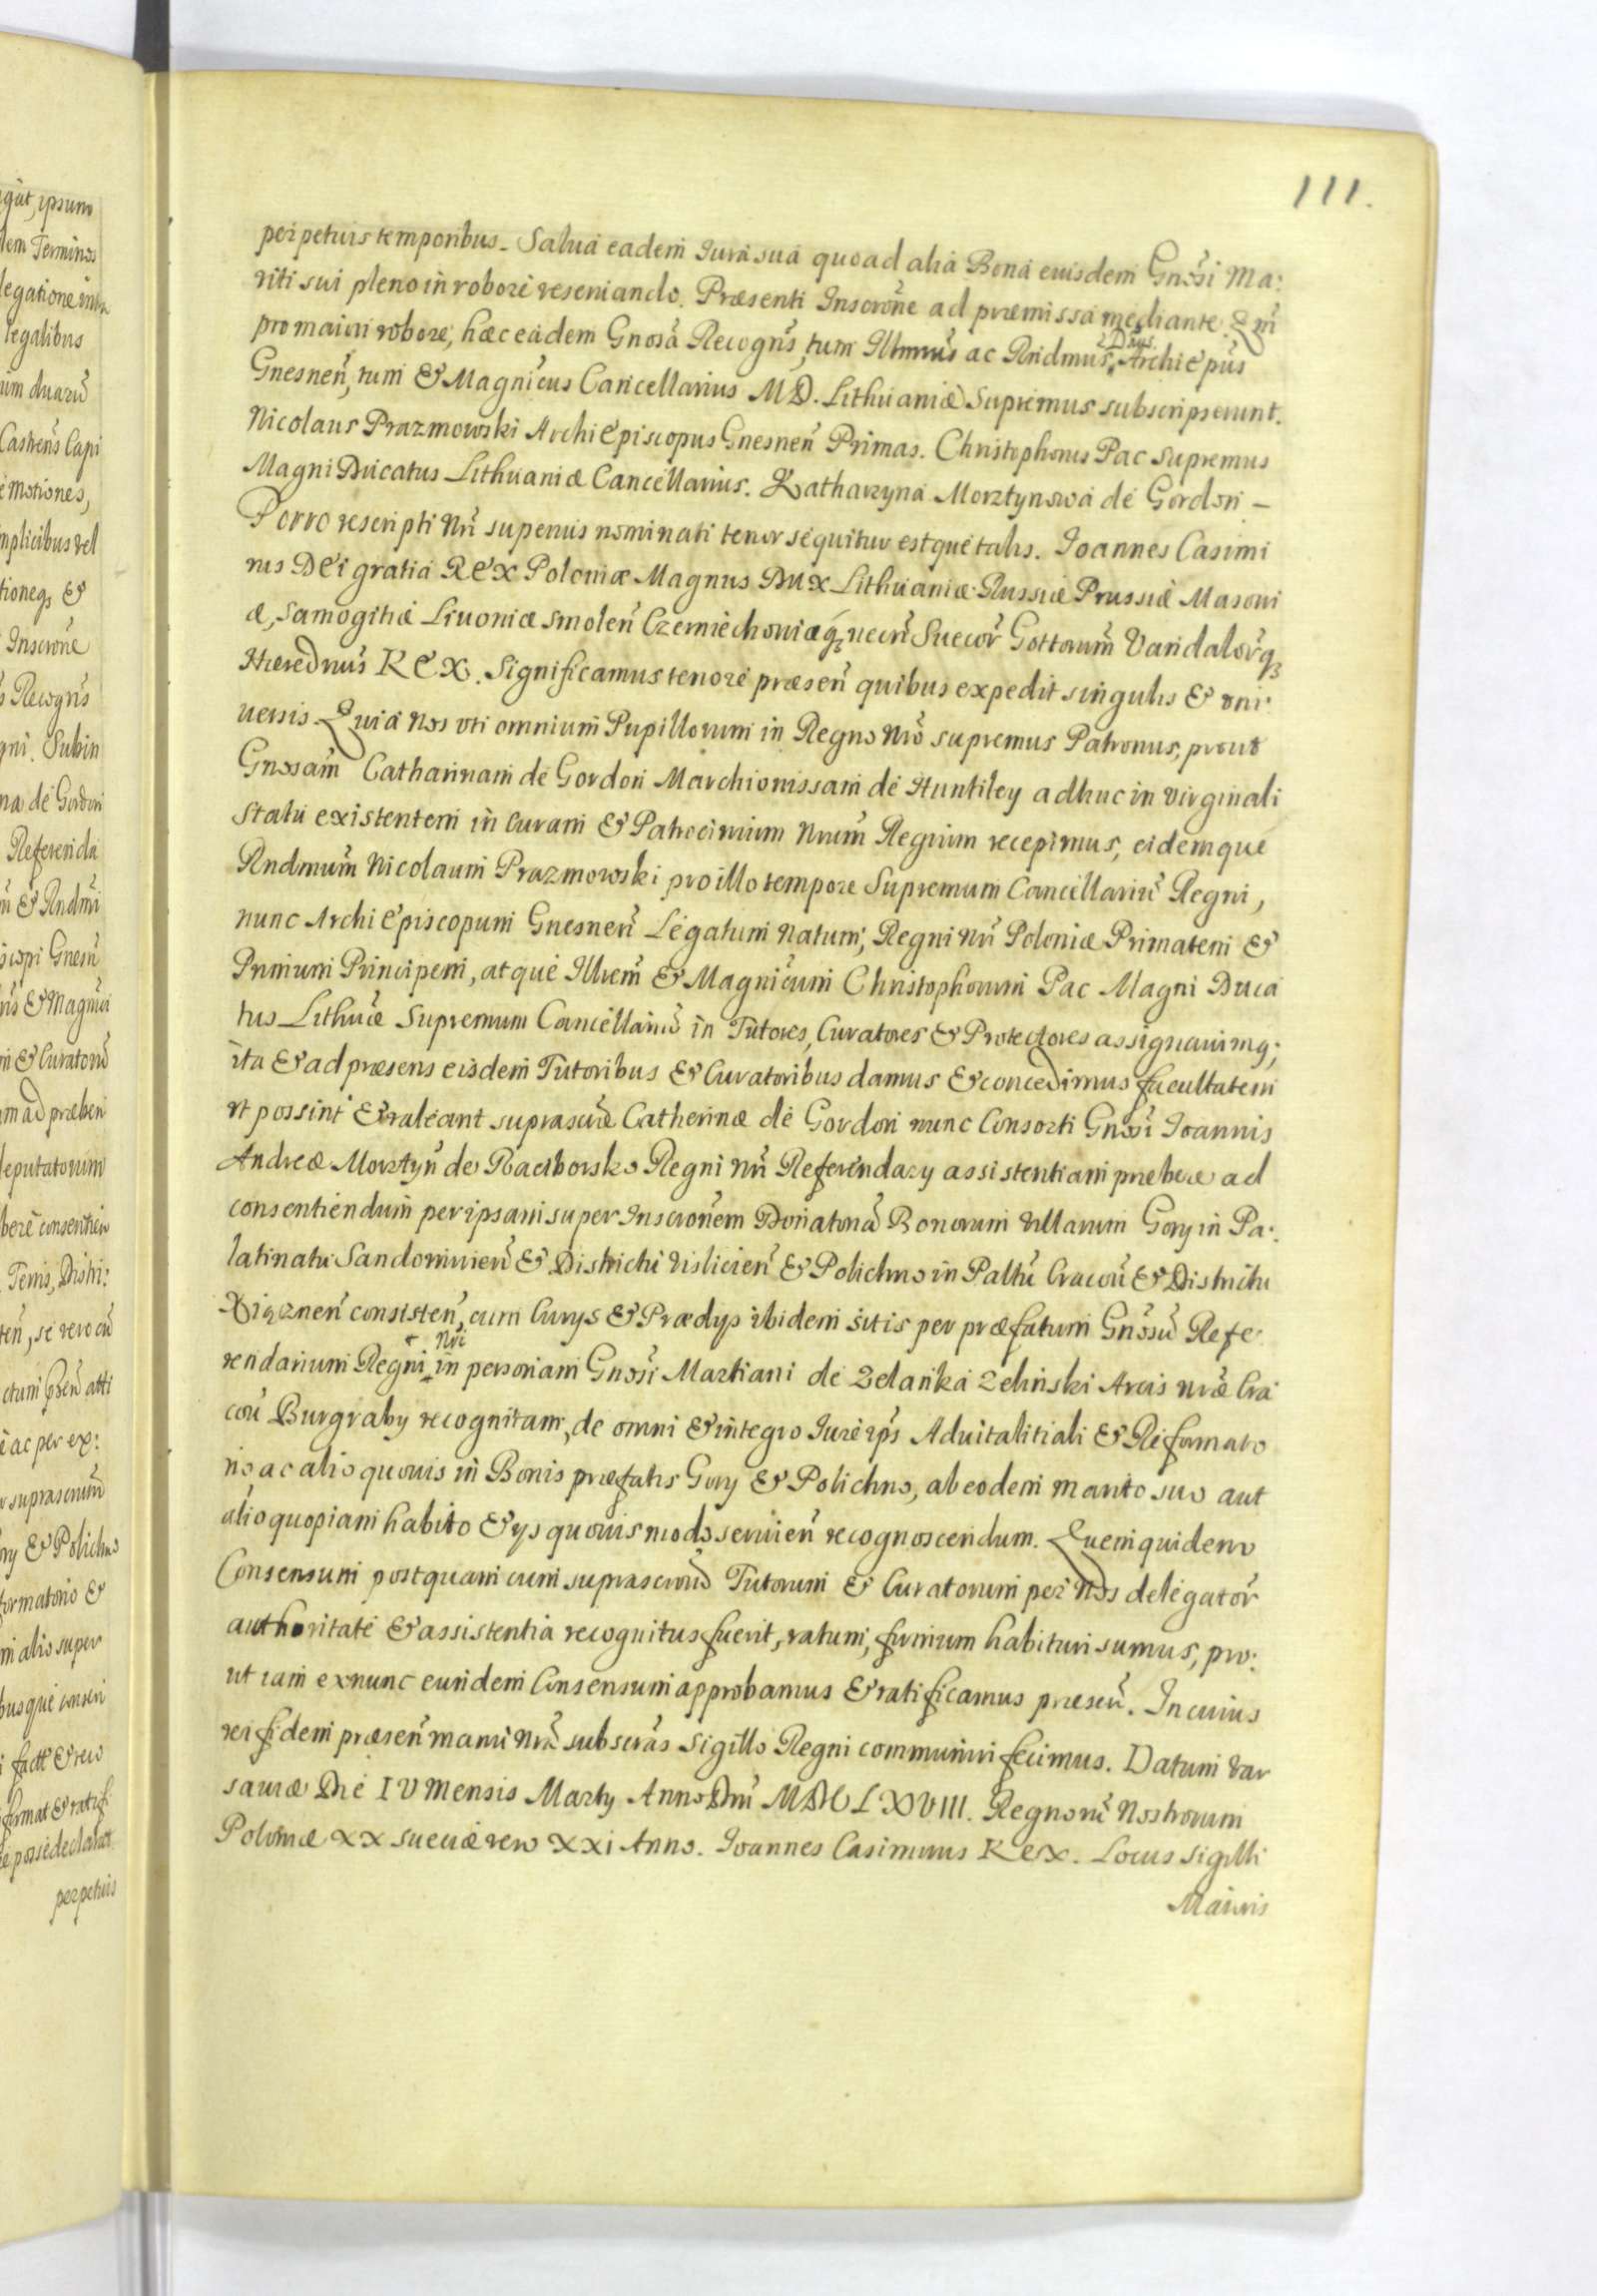 111.
perpetuis temporibus. Salva eadem Jura sua quoad alia Bona eiusdem Gnõsi Ma:
riti sui pleno in robore reservando. Præsenti Inscrõne ad præmissa mediante. Qm̃
pro maiori robore, hæc eadem Gnosã Recogñs, tum Illmũs ac Rndmũs Dñus Archiepũs
Gnesneñ, tum & Magnĩcus Cancellarius M D. Lithuaniæ Supremus subscripserunt.
Nicolaus Prazmowski ArchiEpiscopus Gnesneñ Primas. Christophorus Pac Supremus
Magni Ducatus Lithuaniæ Cancellarius. Katharzyna Morztynowa de Gordon –
Porro rescripti Nrĩ superius nominati tenor sequitur estque talis. Joannes Casimi
rus DEi gratia REX Poloniæ Magnus Dux Lithuaniæ Russiæ Prussiæ Masovi
æ, Samogitiæ Livoniæ Smoleñ Czerniechoviæq3 necñ Suecor̃ Gottorum̃ Vandalor̃q3
Hæreditariũs REX. Significamus tenore præseñ quibus expedit singulis & vni:
versis. Quia Nos vti omnium Pupillorum in Regno Nrõ supremus Patronus, prout
Gnosam̃ Catharinam de Gordon Marchionissam de Huntiley adhuc in virginali
statu existentem in curam & Patrocinium Nrum̃ Regium recepimus, eidemque
Rndmum̃ Nicolaum Prazmowski pro illo tempore Supremum Cancellariũ Regni,
nunc ArchiEpiscopum Gnesneñ Legatum natum, Regni Nrĩ Poloniæ Primatem &
Primum Principem, atque Illrem̃ & Magnĩcum Christophorum Pac Magni Duca
tus Lithuæ̃ Supremum Cancellariũ in Tutores, Curatores & Protectores assignavimq3;
ita & ad præsens eisdem Tutoribus & Curatoribus damus & concedimus facultatem
vt possint & valeant suprascræ̃ Catherinæ de Gordon nunc Consorti Gnõsi Joannis
Andreæ Morztyñ de Raciborsko Regni Nrĩ Referendary assistentiam præbere ad
consentiendum per ipsam super Inscrõnem Donatoriã Bonorum Villarum Gory in Pa:
latinatu Sandomirieñ & Districtu Visliceñ & Polichno in Paltũ Cracoũ & Districtu
Xiązneñ consisteñ, cum Curys & Prædys ibidem sitis per præfatum Gnõsũ Refe
rendarium Regni Nrĩ in personam Gnõsi Martiani de Zelanka Zelinski Arcis Nræ̃ Cra
coũ Burgraby recognitam, de omni & integro Jure ip̃s Advitalitiali & Reformato
rio ac alio quovis in Bonis præfatis Gory & Polichno, ab eodem marito suo aut
alio quopiam habito & ys quovis modo servieñ recognoscendum. Quemquidem
Consensum postquam cum suprascroũ Tutorum & Curatorum per Nos delegator̃
authoritate & assistentia recognitus fuerit, ratum, firmum habituri sumus, pro:
ut iam exnunc eundem Consensum approbamus & ratificamus præseñ. In cuius
rei fidem præseñ manu Nrã subscrãs Sigillo Regni communiri fecimus. Datum Var
saviæ Die IV Mensis Marty Anno Dnĩ MDCLXVIII. Regnorũ Nostrorum
Poloniæ XX Sueciæ vero XXI Anno. Joannes Casimirus REX. Locus Sigilli
Maioris